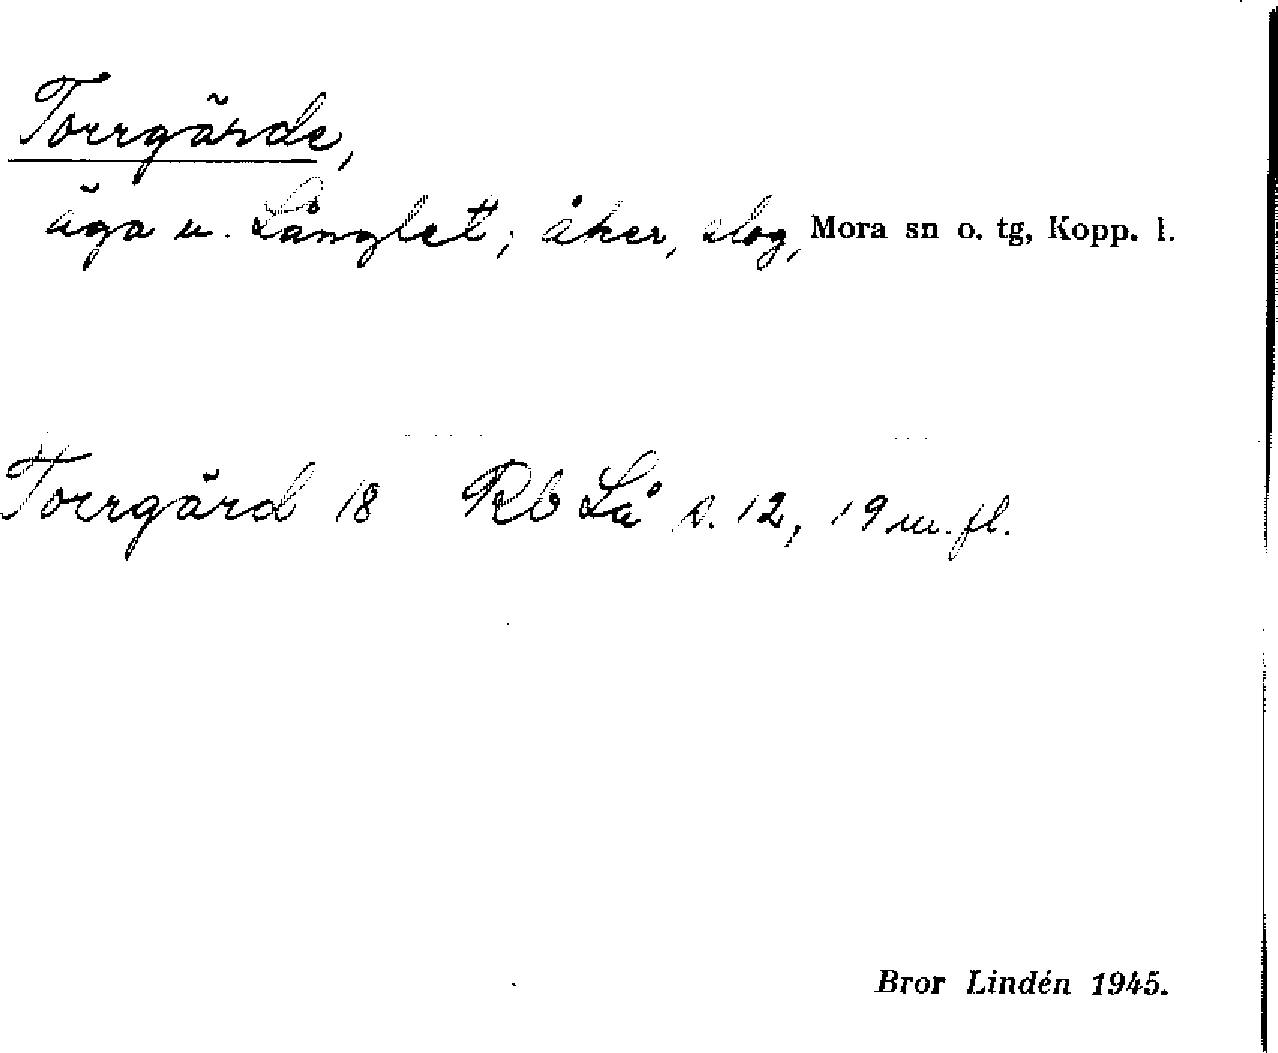 Torrgärde,
äga u. Långlet; åker, slog, Mora sn o. tg, Kopp. l.
Torrgärd 18 Rb Lå s. 12, 19 m. fl.
Bror Lindén 1945.